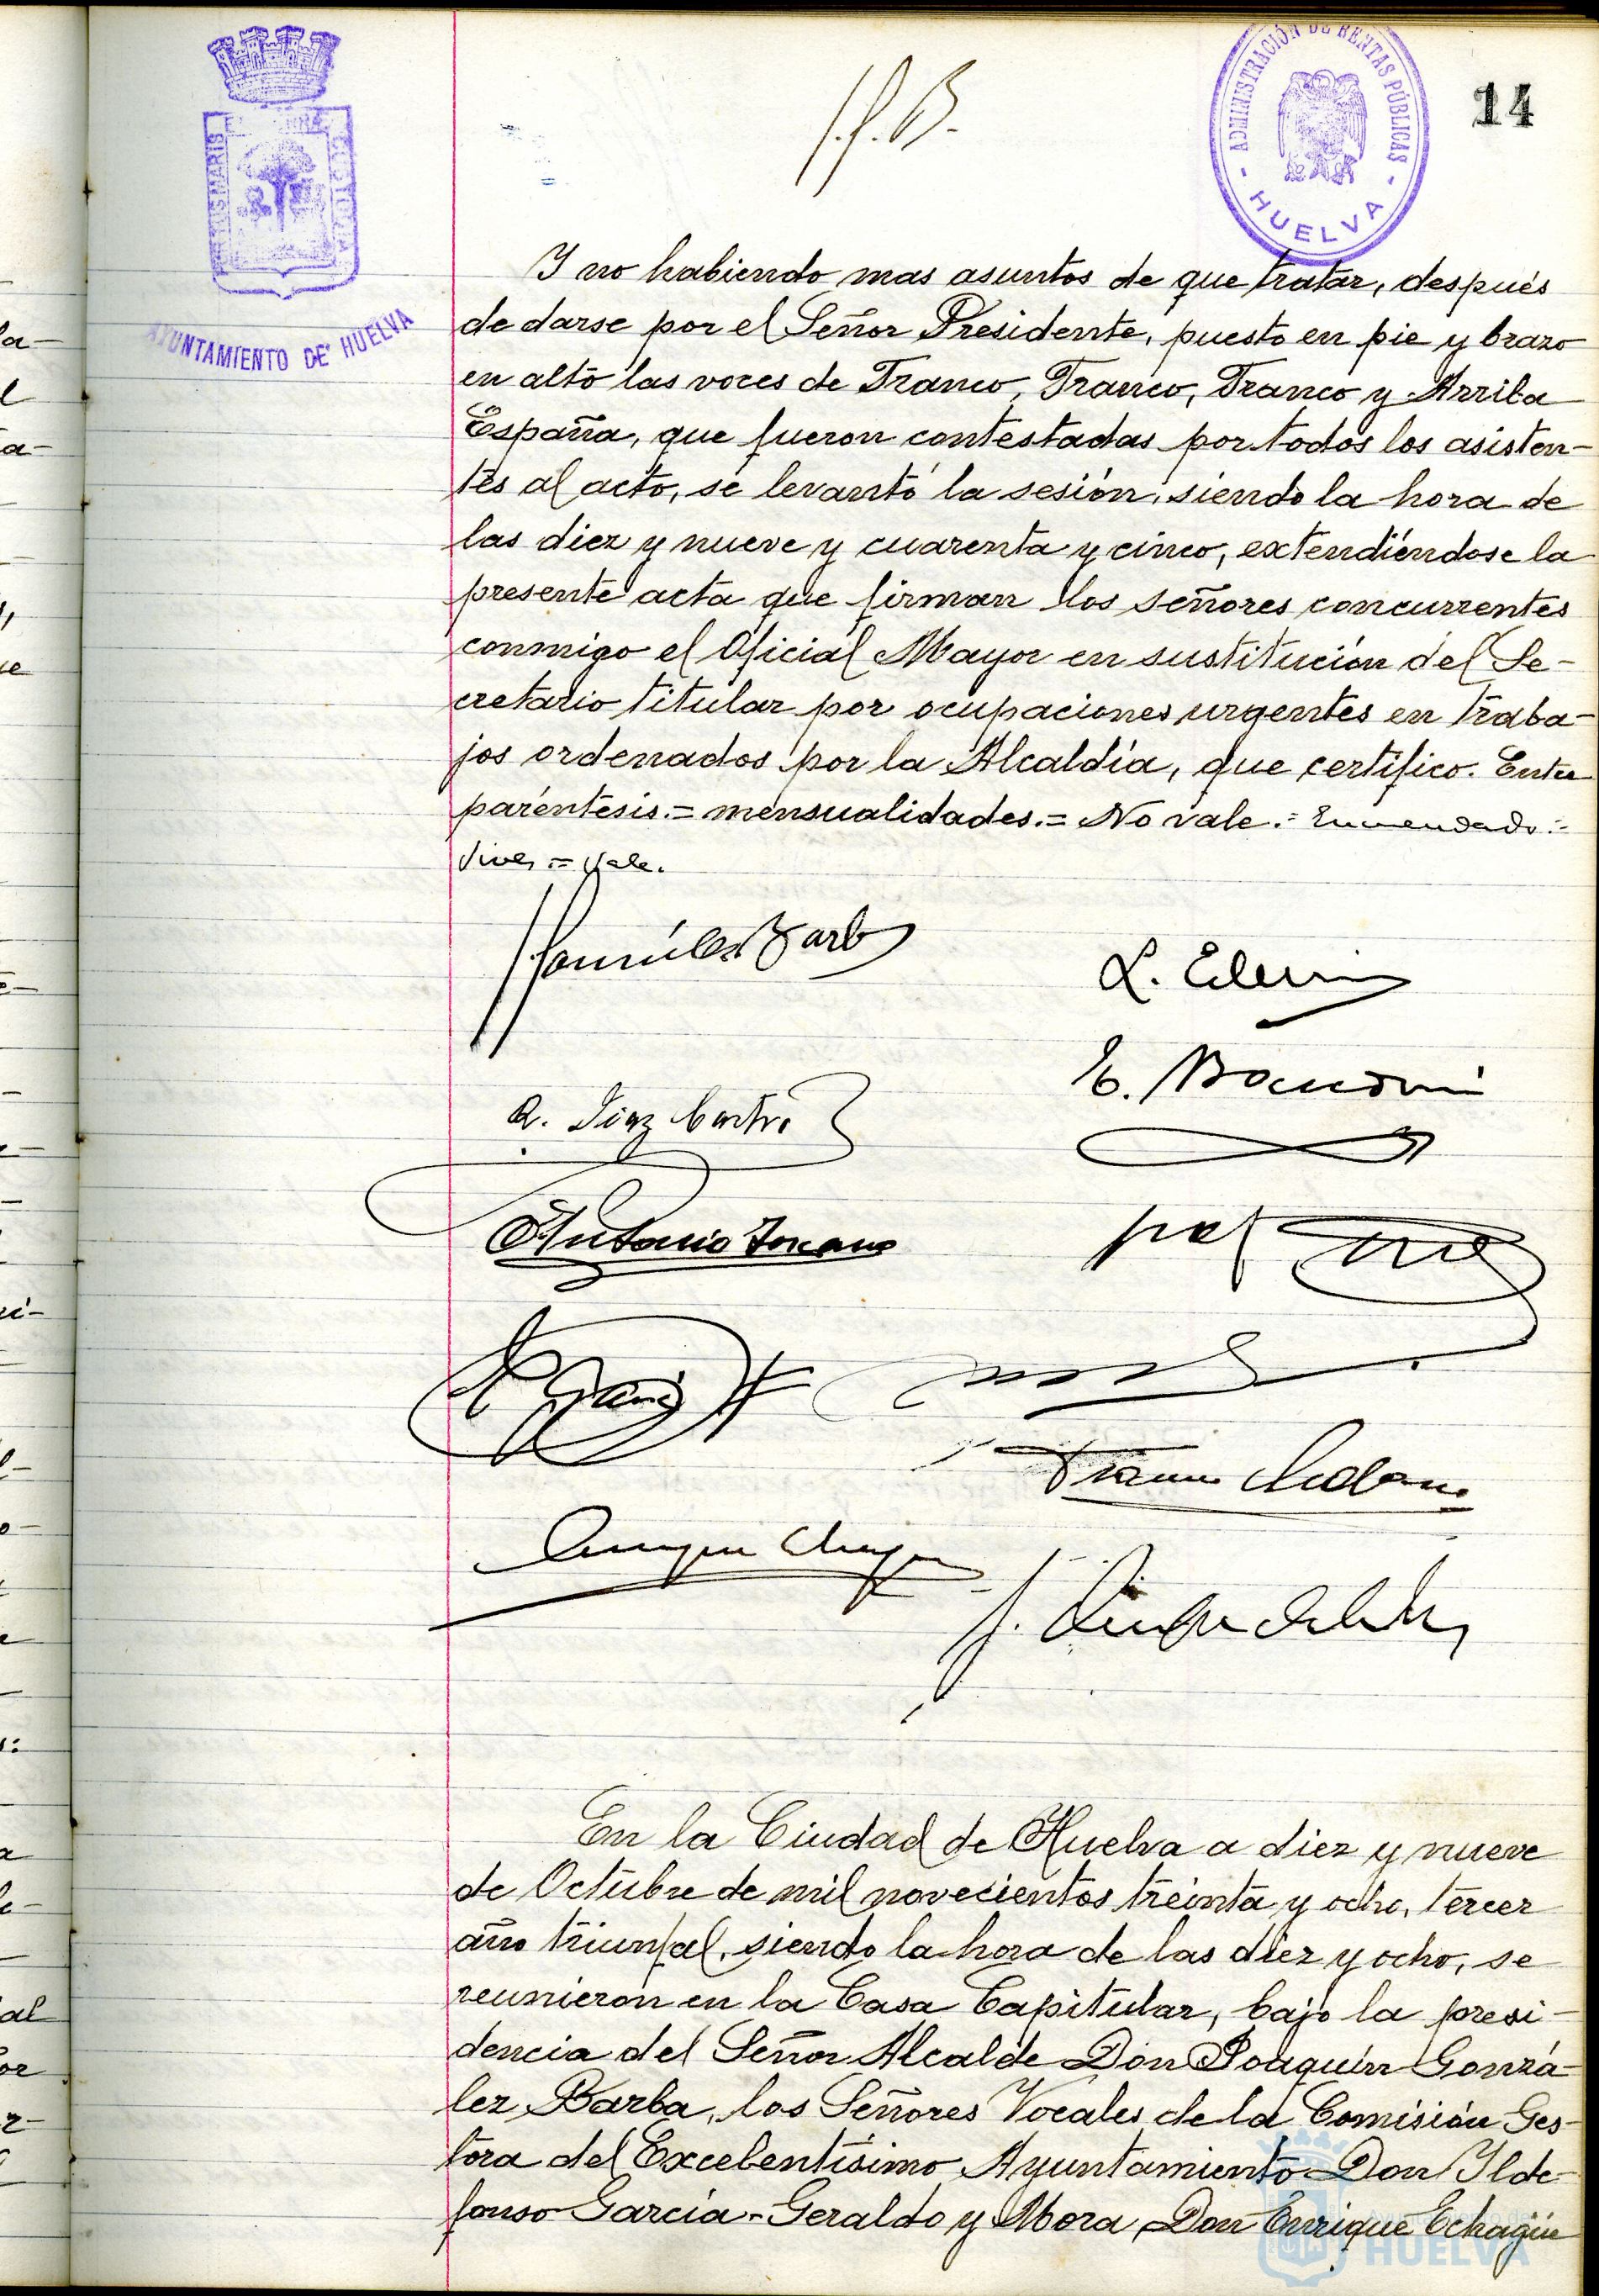 ADMINISTRACIÓN DE RENTAS PÚBLICAS
- HUELVA -
14
AYUNTAMIENTO DE HUELVA
Y no habiendo mas asuntos de que tratar, después
de darse por el Señor Presidente, puesto en pie y brazo
en alto las voces de Franco, Franco, Franco y Arriba
España, que fueron contestadas por todos los asisten-
tes al acto, se levantó la sesión, siendo la hora de
las diez y nueve y cuarenta y cinco, extendiéndose la
presente acta que firman los señores concurrentes
conmigo el Oficial Mayor en sustitución del Se-
cretario titular por ocupaciones urgentes en traba-
jos ordenados por la Alcaldía, que certifico. Entre
paréntesis.= mensualidades.= No vale.= Enmendado:=
= Vale.
R. Diaz Castro
Antonio Toscano
En la Ciudad de Huelva a diez y nueve
de Octubre de mil novecientos treinta y ocho, tercer
año triunfal, siendo la hora de las diez y ocho, se
reunieron en la Casa Capitular, bajo la presi-
dencia del Señor Alcalde Don Joaquín Gonzá-
lez Barba, los Señores Vocales de la Comisión Ges-
tora del Excelentísimo Ayuntamiento Don Ilde-
fonso Garcia-Geraldo y Mora, Don Enrique Echagüe
HUELVA